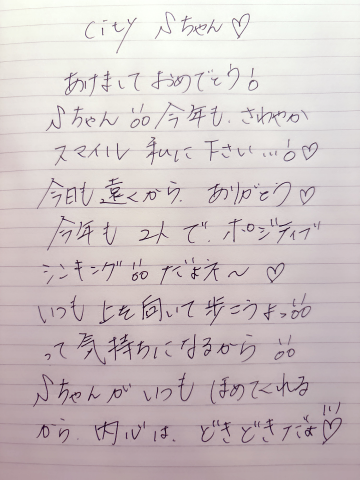 city Sちゃん♡
あけましておめでとう!
Sちゃん!!今年も、さわやか
スマイル 私に下さい…!♡
今日も遠くから、ありがとう♡
今年も2人で、ポジティブ
シンキング!!だよネ〜 ♡
いつも上を向いて歩こうよっ!!
って気持ちになるから!!
Sちゃんがいつもほめてくれる
から、内心は、どきどきだよ♡